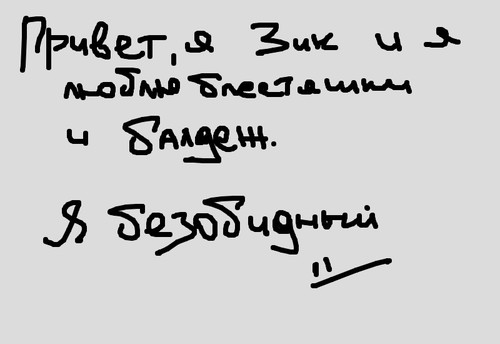 Привет, я Зик и я
люблю блестяшки
и балдеж.
Я безобидный